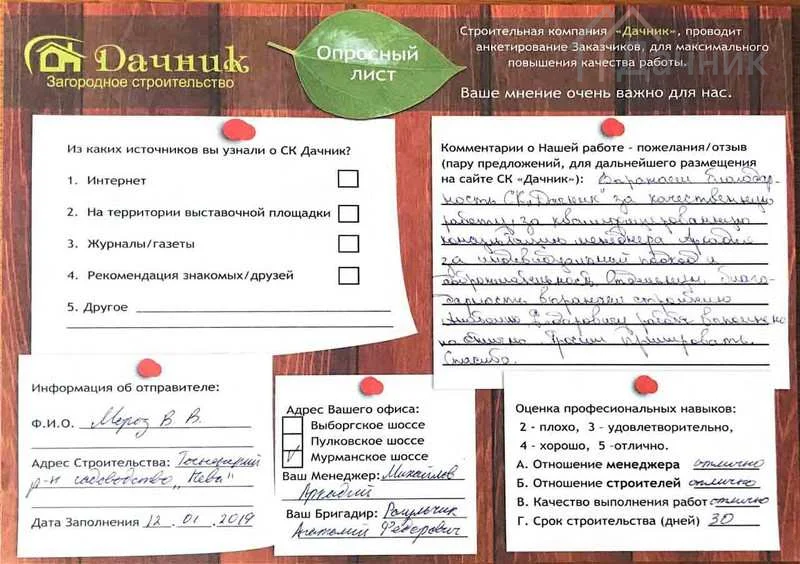 Дачник
Загородное строительство
Опросный
лист
Строительная компания «Дачник», проводит
анкетирование Заказчиков, для максимального
повышения качества работы.
Ваше мнение очень важно для нас.
Дачник
Из каких источников вы узнали о СК Дачник?
1. Интернет
2. На территории выставочной площадки
3. Журналы/газеты
4. Рекомендация знакомых/друзей
5. Другое
Комментарии о Нашей работе - пожелания/отзыв
(пару предложений, для дальнейшего размещения
на сайте СК «Дачник»): Выражаем благодар-
ность СК „Дачник" за качественную
работу, за квалифицированную
консультацию менеджера Аркадия
за индивидуальный подход и
доброжелательность. Отдельную благо-
дарность выражаем строителю
Анатолию Федоровичу работа выполнена
на отлично. Просим премировать.
Спасибо.
Информация об отправителе:
Ф.И.О. Мороз В. В.
Адрес Строительства: Тосненский
р-н садоводство „Нева"
Дата Заполнения 12.01.2019
Адрес Вашего офиса:
Выборгское шоссе
Пулковское шоссе
Мурманское шоссе
Ваш Менеджер: Михайлов
Аркадий
Ваш Бригадир:
Анатолий Федорович
Оценка профессиональных навыков:
2 - плохо, 3 - удовлетворительно,
4 - хорошо, 5 -отлично.
А. Отношение менеджера отлично
Б. Отношение строителей отлично
В. Качество выполнения работ отлично
Г. Срок строительства (дней) 30